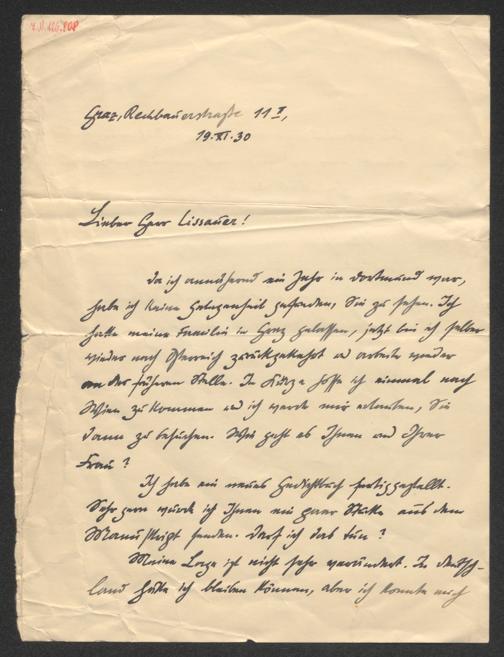 Graz, Rechbauerstraße 11 I,
19.XI.30
Lieber Herr Lissauer!
Da ich annähernd ein Jahr in Dortmund war,
habe ich keine Gelegenheit gefunden, Sie zu sehen. Ich
hatte meine Familie in Graz gelassen, jetzt bin ich selber
wieder nach Österreich zurückgekehrt u arbeite wieder
an der früheren Stelle. In Kürze hoffe ich einmal nach
Wien zu kommen und ich werde mir erlauben, Sie
dann zu besuchen. Wie geht es Ihnen und Ihrer
Frau?
Ich habe ein neues Gedichtbuch fertiggestellt.
Sehr gern würde ich Ihnen ein paar Stücke aus dem
Manuskript senden. Darf ich das tun?
Meine Lage ist nicht sehr verändert. In Deutsch-
land hätte ich bleiben können, aber ich konnte mich